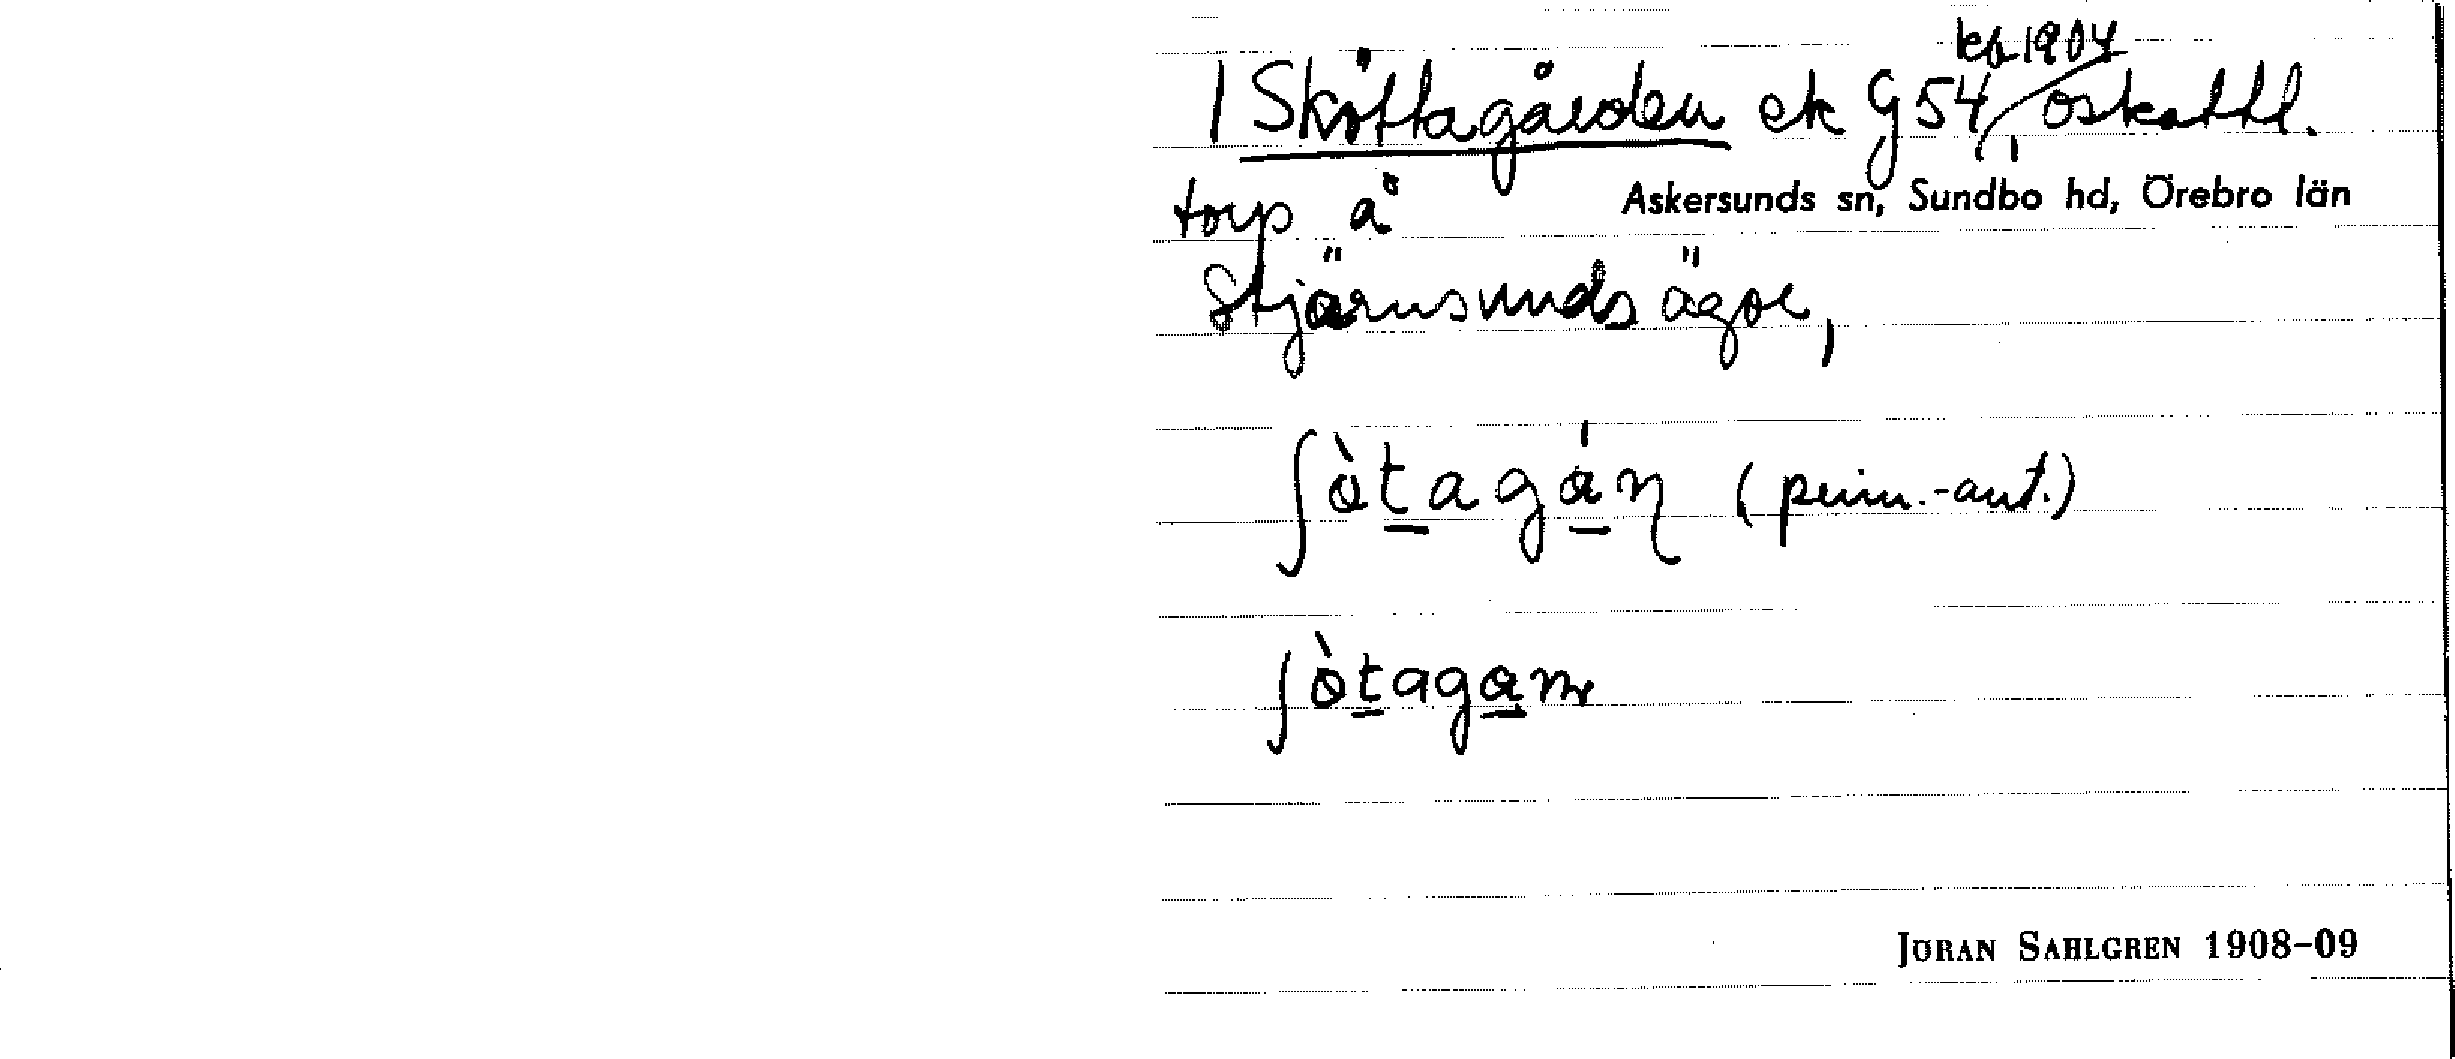 kb 1904
1 Sköttagården ek G 54, oskattl.
torp å Askersunds sn, Sundbo hd, Örebro län
Stjärnsunds ägor,
ʃòtagán (prim.-ant.)
ʃòtagan
JÖRAN SAHLGREN 1908-09